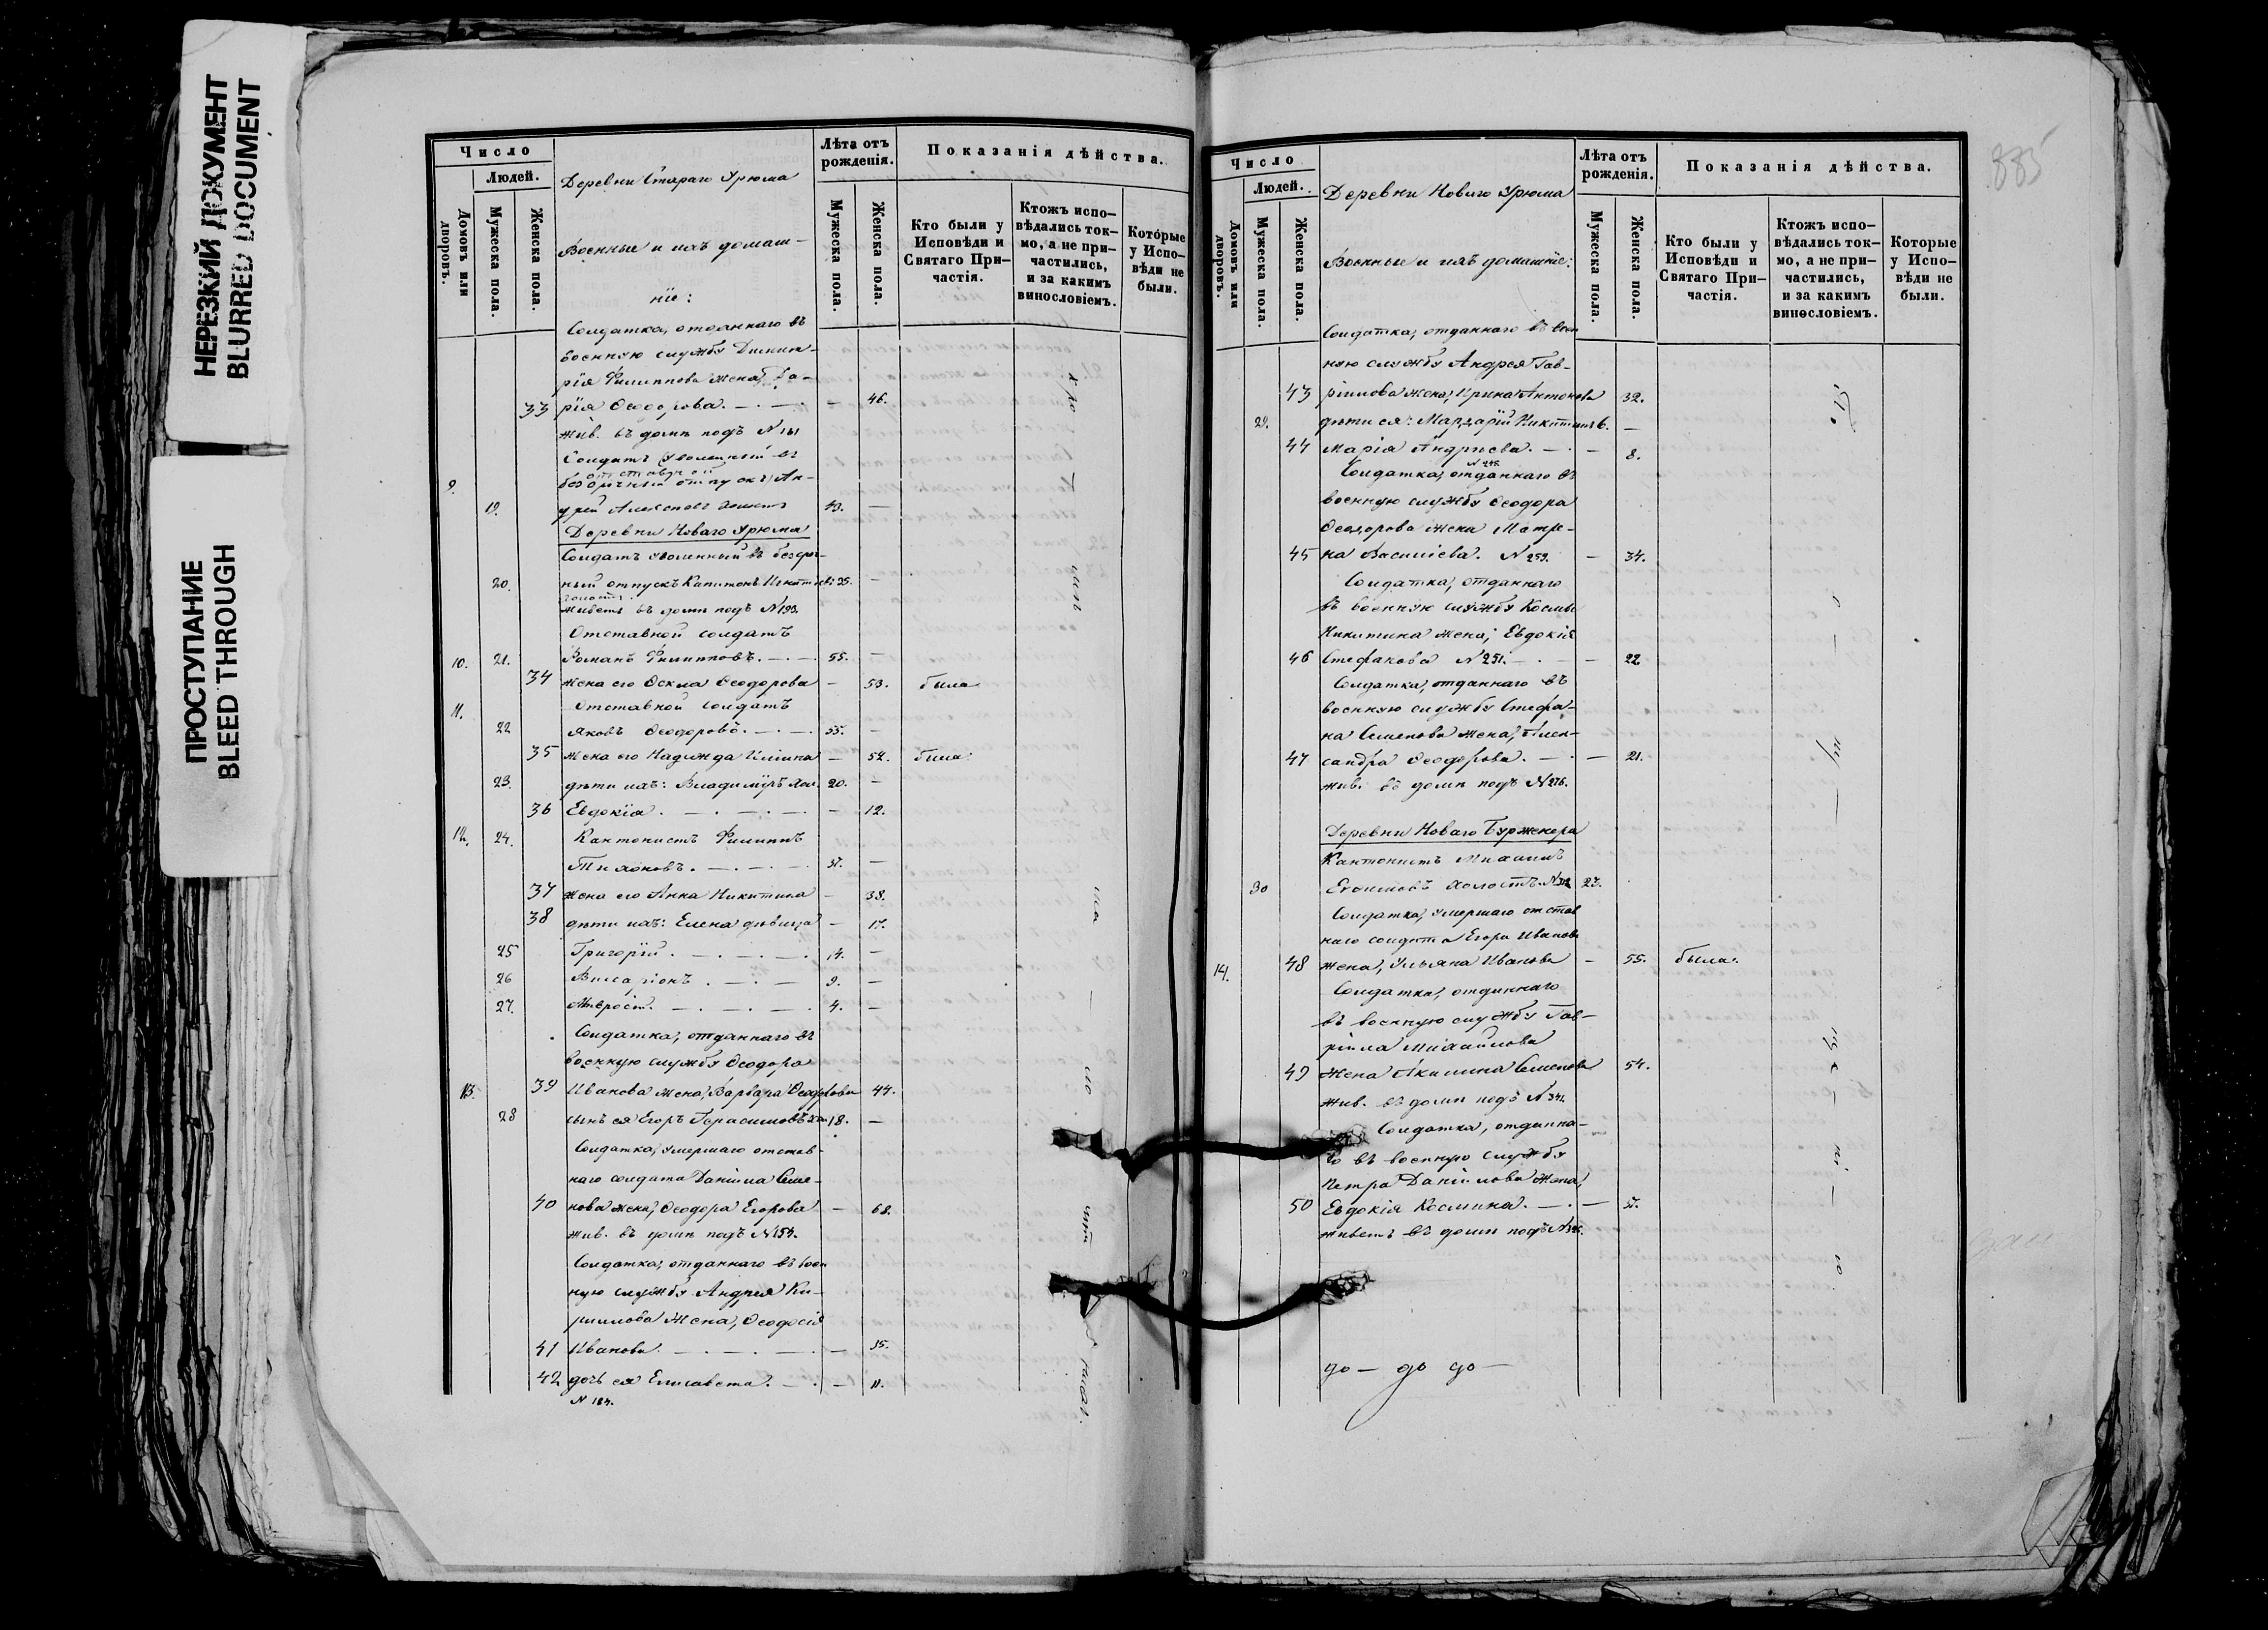 НЕРЕЗКИЙ ДОКУМЕНТ
BLURRED DOCUMENT
ПРОСТУПАНИЕ
BLEED THROUGH
Число
Людей.
Домовъ или дворовъ.
Мужеска пола.
Женска пола.
Деревни Стараго Урюма
Военные и ихъ домаш-
ніе:
Лѣта отъ рожденія.
Мужеска пола.
Женска пола.
Показанія дѣйства.
Кто были у Исповѣди и Святаго При-частія.
Ктожъ испо-вѣдались ток-мо, а не при-частились, и за какимъ винословіемъ.
Которые у Испо-вѣди не были.
Солдатка, отданнаго въ
военную службу Дмит-
рія Филиппова жена, Да-
33 рія Ѳеодорова. — 46.
жив. въ домѣ подъ N 181
Солдатъ уволенный въ
9. безсрочный отпускъ Ан-
19. 43. —
Деревни Новаго Урюма
Солдатъ уволенный въ безсроч-
20. ный отпускъ Капитонъ Никитинъ 25. —
холостъ
живетъ въ домѣ подъ N 193.
Отставной солдатъ
10. 21. Романъ Филипповъ. 55. —
34 жена его Ѳекла Ѳеодорова — 53. была
11. Отставной солдатъ
22 Яковъ Ѳеодоровъ. 55. —
35 жена его Надежда Ильина — 52. была
23. дѣти ихъ: Владиміръ хол. 20. —
36 Евдокія. — 12.
12. 24. Кантонистъ Филиппъ
Тихоновъ. —
37 жена его Анна Никитина — 38.
38 дѣти ихъ: Елена дѣвица — 17.
25 Григорій. 14. —
26 Виссаріонъ. 9. —
27. Амвросій. 4. —
Солдатка, отданнаго въ
военную службу Ѳеодора
13. 39 Иванова жена, Варвара Ѳеодорова 44.
28 сынъ ея Егоръ Герасимовъ хол. 18. —
Солдатка, умершаго отстав-
наго солдата Даніила Семе-
40 нова жена, Ѳеодора Егорова — 68.
жив. въ домѣ подъ N 154.
Солдатка, отданнаго въ воен
ную службу Андрея Ки-
риллова жена, Ѳеодосія
41 Иванова. — 35.
42 дочь ея Елисавета. — 11.
N 184.
885
Число
Людей.
Домовъ или дворовъ.
Мужеска пола.
Женска пола.
Деревни Новаго Урюма
Военные и ихъ домашніе:
Лѣта отъ рожденія.
Мужеска пола.
Женска пола.
Показанія дѣйства.
Кто были у Исповѣди и Святаго При-частія.
Ктожъ испо-вѣдались ток-мо, а не при-частились, и за какимъ винословіемъ.
Которые у Испо-вѣди не были.
Солдатка, отданнаго въ воен
ную службу Андрея Гав-
43 ріилова жена, Ирина Антонова 32.
29. дѣти ея: Мардарій Никитинъ 6. —
44 Марія Андреева. — 8.
Солдатка, отданнаго въ
военную службу Ѳеодора
Ѳеодорова жена Матре-
45 на Василіева. N 259. — 34.
Солдатка, отданнаго
въ военную службу Космы
Никитина жена, Евдокія
46 Стефанова N 251. — 22
Солдатка, отданнаго въ
военную службу Стефа-
на Семенова жена, Алек-
47 сандра Ѳеодорова. — 21.
жив. въ домѣ подъ N 276.
Деревни Новаго Буржекера
Кантонистъ Михаилъ
30 холостъ. 23.
Солдатка, умершаго отстав
наго солдата Егора Иванова
14. 48 жена, Ульяна Иванова — 55. была.
Солдатка, отданнаго
въ военную службу Гав-
ріила Михайлова
49 жена Акилина Семенова 54.
жив. въ домѣ подъ N 341.
Солдатка, отданна-
го въ военную службу
Петра Даніилова жена,
50 Евдокія Космина. —
живетъ въ домѣ подъ
до — до до —